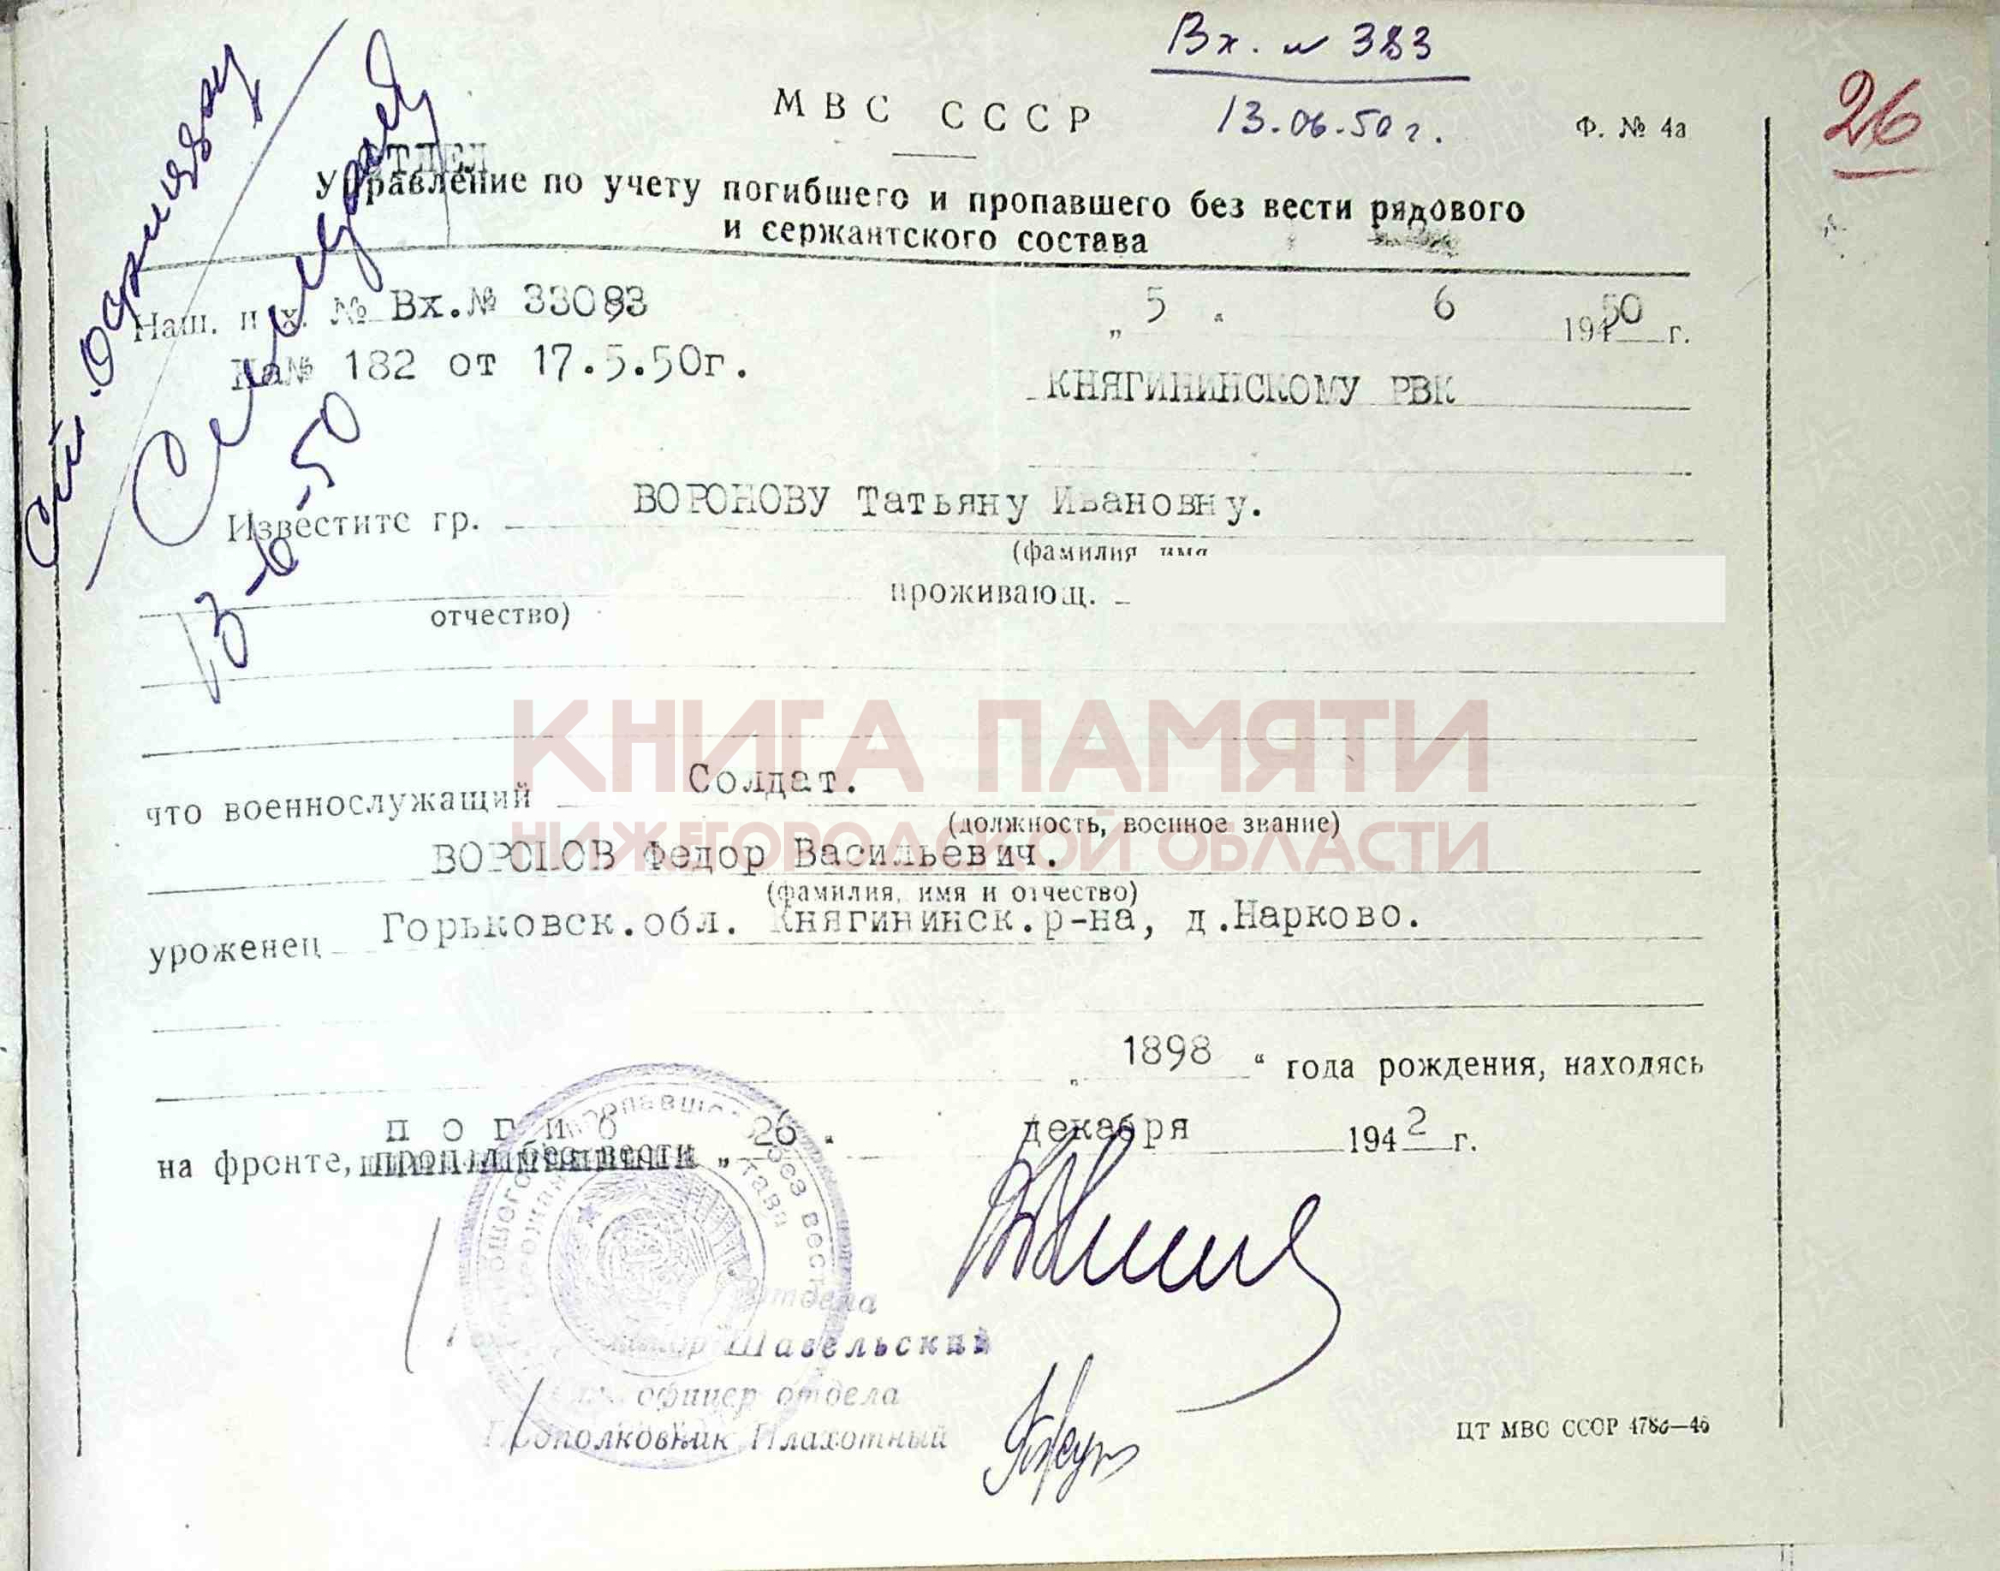 Вх. № 383
МВС СССР
13.06.50 г.
Ф. № 4а
26
ОТДЕЛ
Управление по учету погибшего и пропавшего без вести рядового
и сержантского состава
Наш. исх. № Вх.№ 33083
„ 5 “ 6 1950 г.
На№ 182 от 17.5.50г.
КНЯГИНИНСКОМУ РВК
13-6-50
Известите гр. ВОРОНОВУ Татьяну Ивановну.
(фамилия имя
отчество)
проживающ.
КНИГА ПАМЯТИ
НИЖЕГОРОДСКОЙ ОБЛАСТИ
что военнослужащий Солдат.
(должность, военное звание)
ВОРОНОВ Федор Васильевич.
(фамилия, имя и отчество)
уроженец Горьковск.обл. Княгининск.р-на, д.Нарково.
„ 1898 “ года рождения, находясь
погиб
на фронте, пропал без вести „ 26 “ декабря 1942 г.
отдела
Шавельский
офицер отдела
Подполковник Плахотный
ЦТ МВС СССР 4786—46